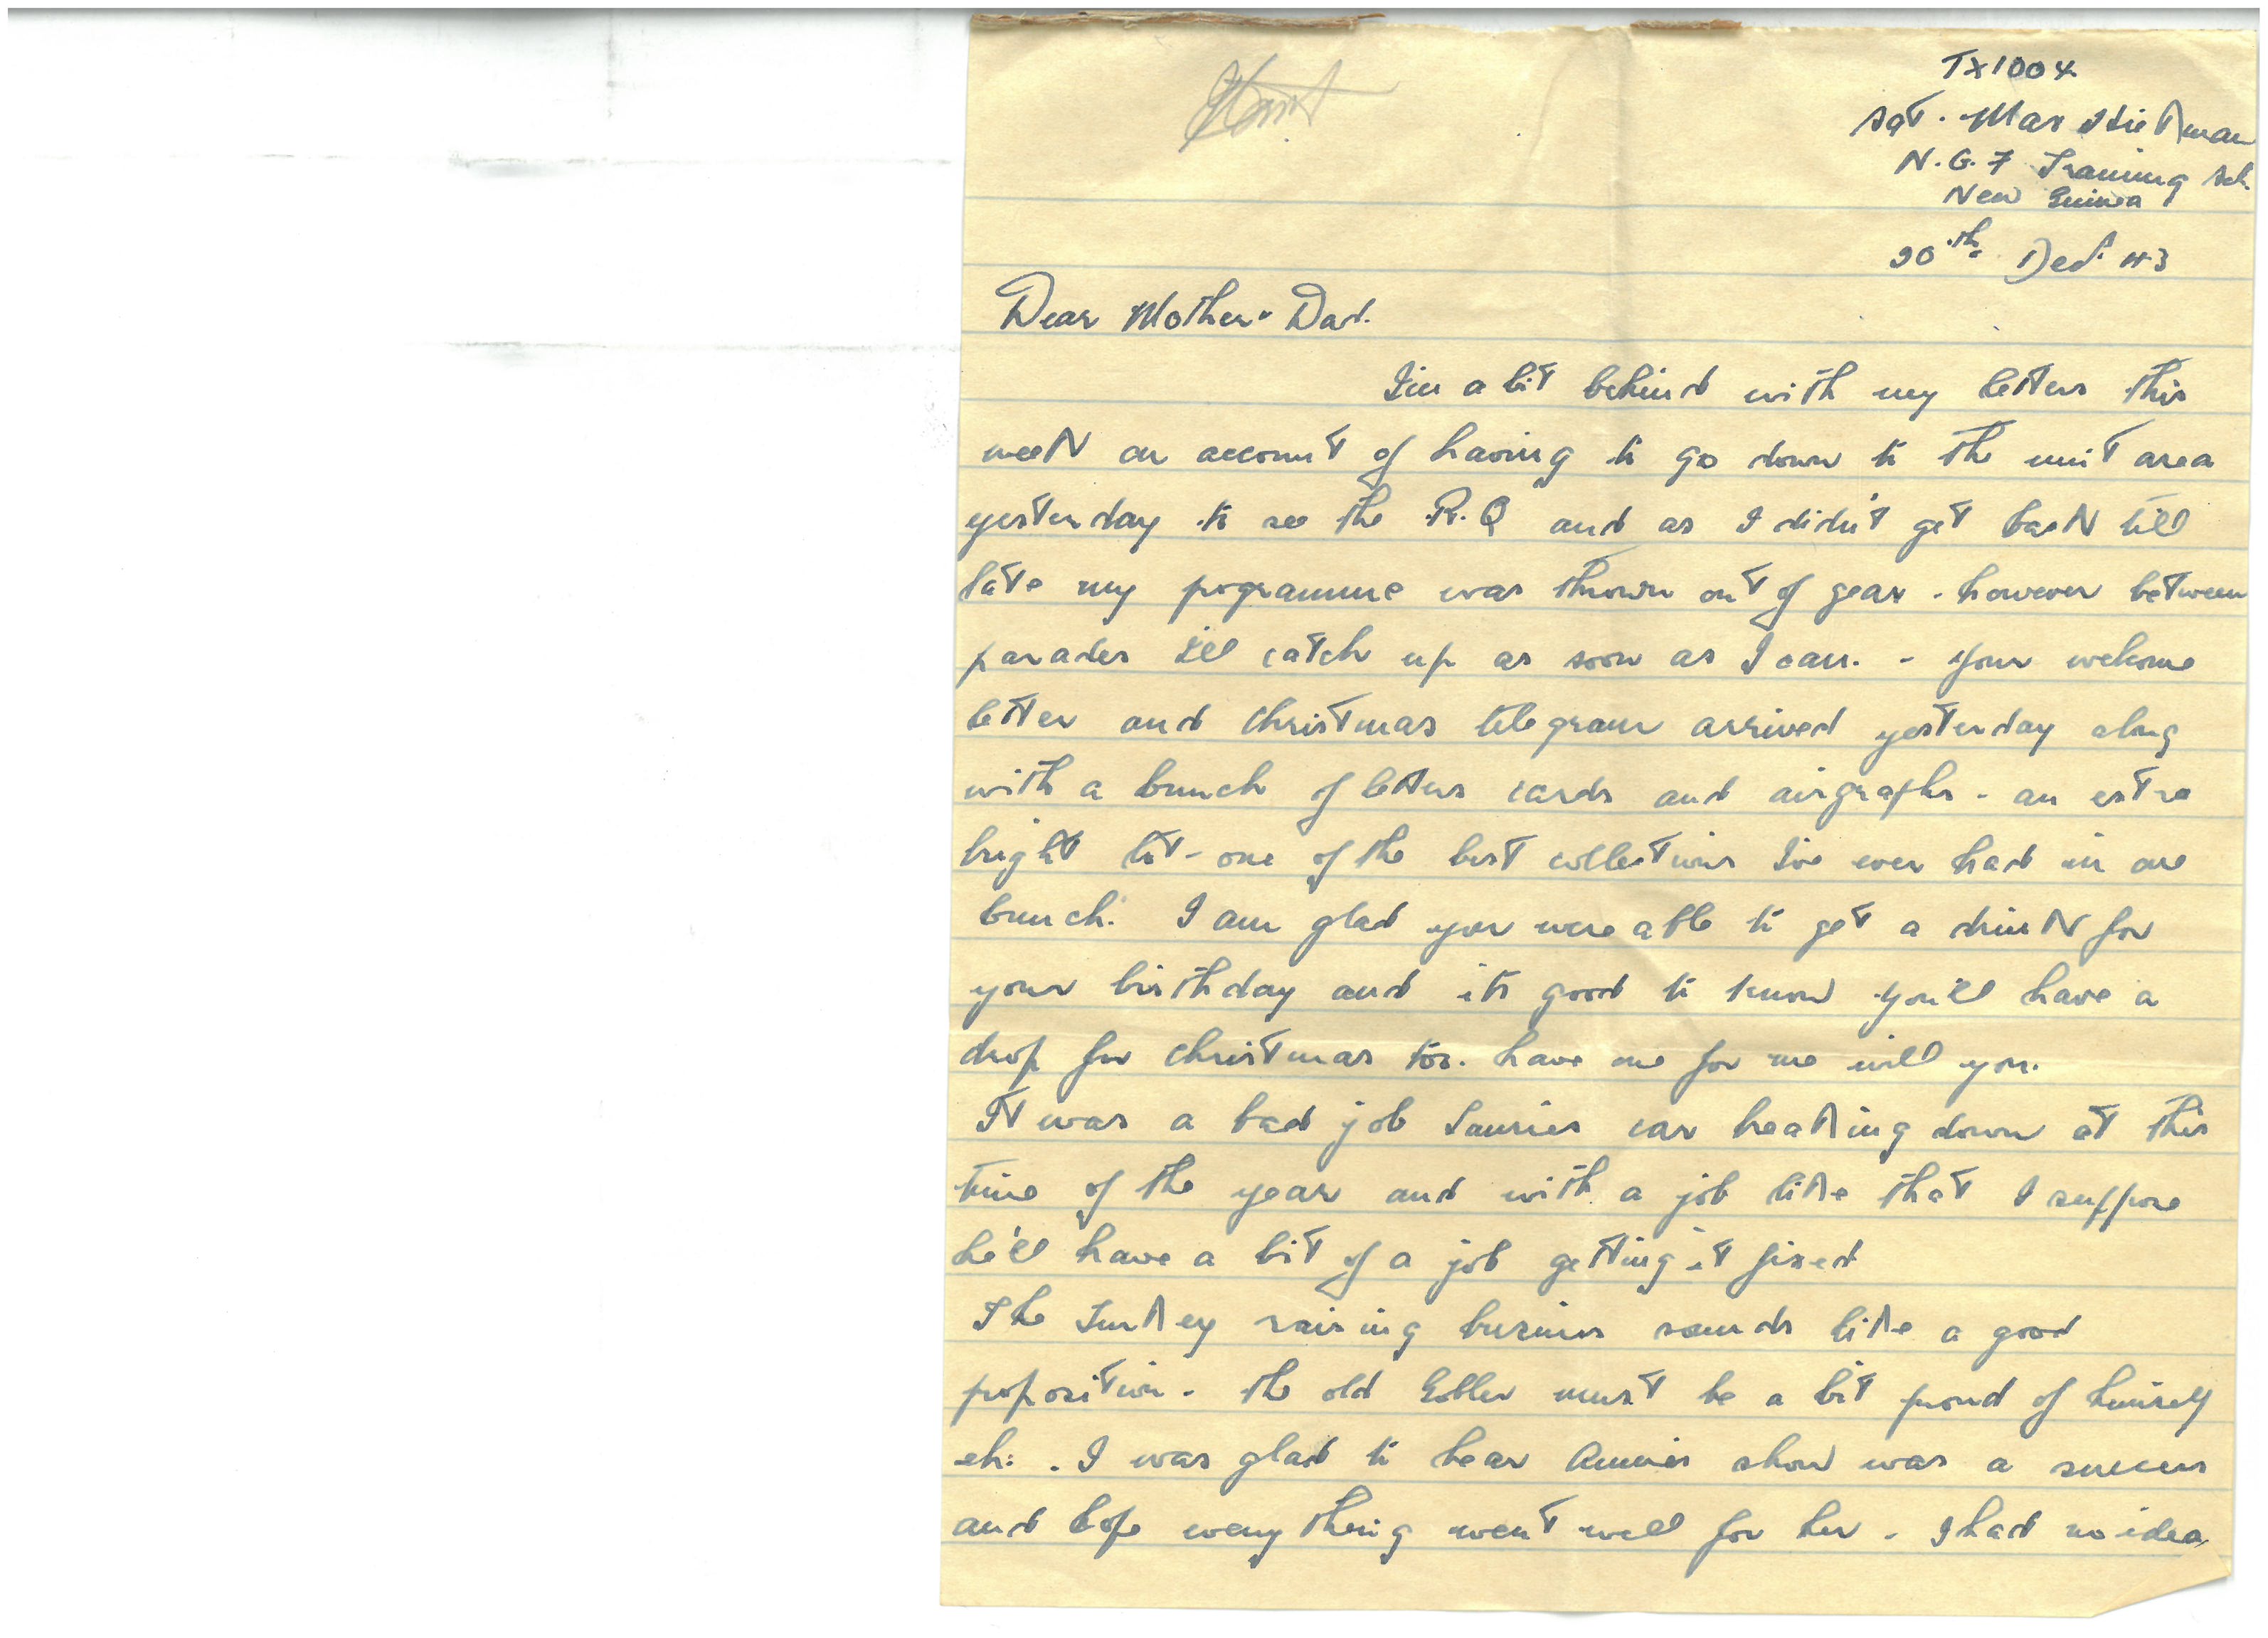 TX1004
Sgt. Max Hickman
N.G.F Training Sch.
New Guinea
20th Dec. 43
Dear Mother & Dad.
I'm a bit behind with my letters this
week on account of having to go down to the unit area
yesterday to see the R.Q and as I didn't get back till
late my programme was thrown out of gear - however between
parades I'll catch up as soon as I can. - Your welcome
letter and Christmas telegram arrived yesterday along
with a bunch of letters cards and airgraphs - an extra
bright lot - one of the best collections I've ever had in one
bunch. I am glad you were able to get a drink for
your birthday and its good to know you'll have a
drop for Christmas too. have one for me will you.
It was a bad job Lauries car breaking down at this
time of the year and with a job like that I suppose
he'll have a bit of a job getting it fixed
The Turkey raising business sounds like a good
proposition - the old Gobbler must be a bit proud of himself
eh: . I was glad to hear Annies show was a success
and hope everything went well for her - I had no idea